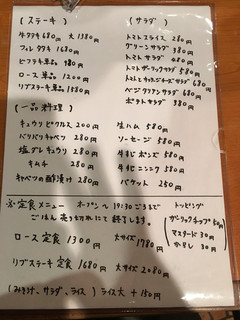 (ステーキ)
牛タキ 680円 大 1380円
フィレ タタキ 1680円
ヒフステーキ 単品 980円
ロース 単品 1200円
リブステーキ 単品 1580円
(サラダ)
トマトスライス 280円
グリーンサラダ 380円
トマトサラダ 480円
トマトガーリックサラダ 580円
トマトとモッツァレラチーズサラダ 680円
ベジタリアンサラダ 680円
ポテトサラダ 380円
(一品料理)
キュウリピクルス 200円
パリパリキャベツ 280円
塩ダレキュウリ 280円
キムチ 280円
キャベツの酢漬け 280円
生ハム 580円
ソーセージ 580円
牛すじポンズ 580円
牛すじニンニク 580円
バケット 250円
定食メニュー オープン〜19:30ごろまで
ごはん売り切れにて終了します。
ロース定食 1300円 大サイズ 1780円
リブステーキ定食 1680円 大サイズ 2080円
(みそ汁、サラダ、ライス) ライス大 +150円
トッピング
ガーリックチップ 50円
マスタード 30円
からし 30円